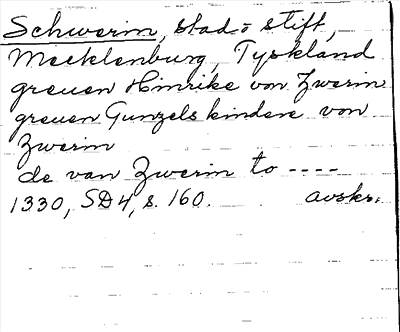 Schwerin, stad o stift,
Mecklenburg, Tyskland
greuen Hinrike von Zwerin
greuen Gunzels kindere von
Zwerin
de van Zwerin to ----
1330, SD4, s. 160. avskr.